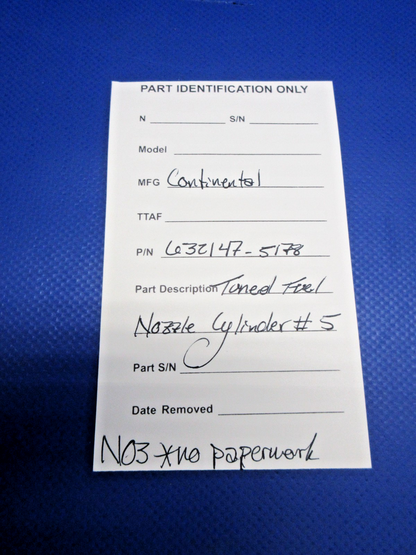 PART IDENTIFICATION ONLY
N ____________ S/N ____________
Model ____________
MFG Continental
TTAF ____________
P/N 632147-5178
Part Description Tuned Fuel
Nozzle Cylinder # 5
Part S/N ____________
Date Removed ____________
NO3 *no paperwork